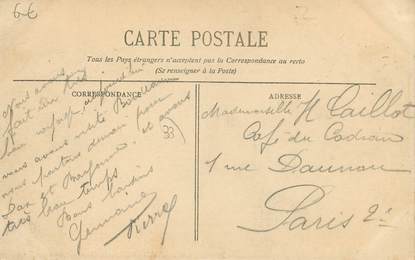 6€
CARTE POSTALE
Tous les Pays étrangers n'acceptent pas la Correspondance au recto
(Se renseigner à la Poste)
CORRESPONDANCE
ADRESSE
Nous avons
fait un très
bon voyage, aujourd'hui
nous avons visité Bordeaux
nous partons demain pour
Dax et Bayonne et avons
très beau temps
Bons baisers
Germaine
Pierre
33
Mademoiselle H Caillot
Café du Cadran
1 rue Daunou
Paris 2e